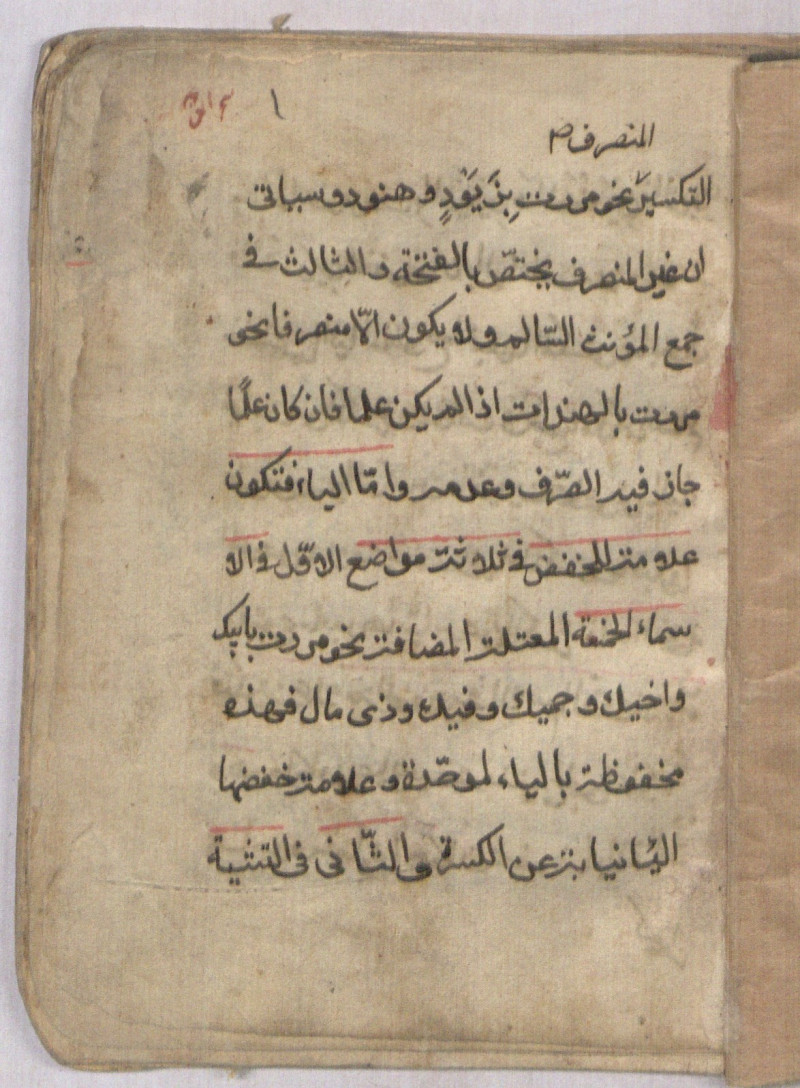 ١
المنصرف ص
التكسير نحو مررت بِزَيُودٍ وهنود وسياتي
ان غير المنصرف يختصّ بالفتحة والثالث في
جمع المؤنث السّالم ولا يكون الّا منصرفا نحو
مررت بالهندات اذا لم يكن علما فان كان علمًا
جاز فيه الصّرف وعدمه وامّا الياء فتكون
علامة للخفض في ثلاثة مواضع الاوّل في الا
سماء الخمسة المعتلة المضافة نحو مررت بابيك
واخيك وحميك وفيك وذي مال فهذه
مخفوظة بالياء لموحّدة وعلامة خفضها
اليا نيابة عن الكسرة والثّاني في التثنية